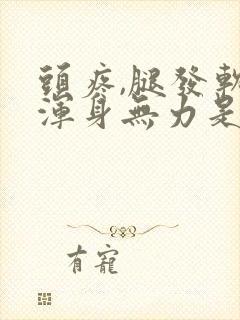 頭疼,腿發軟
渾身無力是
有寵